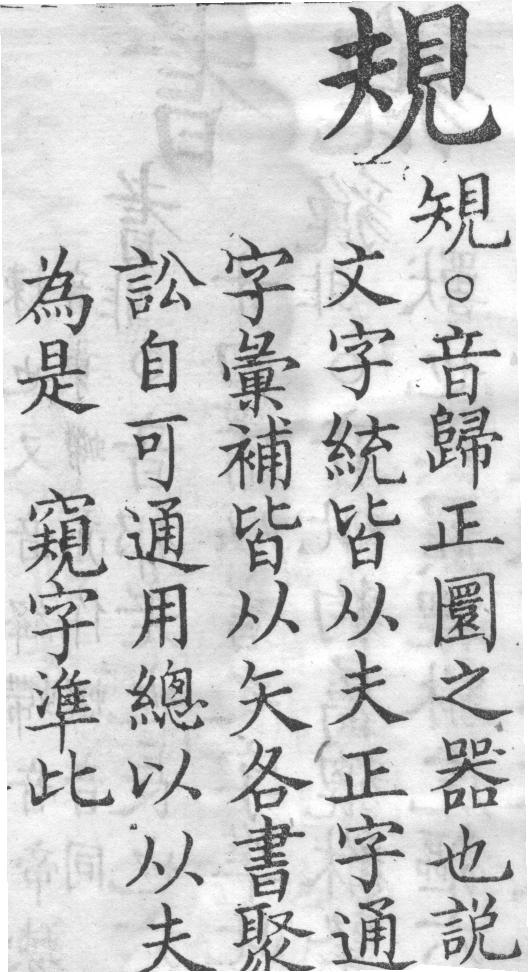 規
䂓。音歸正圜之器也説
文字統皆从夫正字通
字彙補皆从矢各書聚
訟自可通用總以从夫
為是　窺字準此